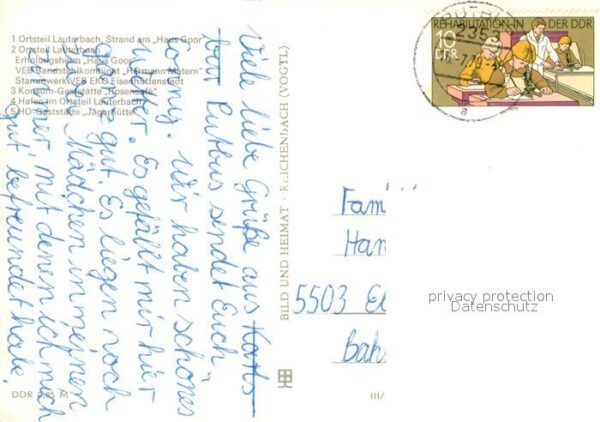 1 Ortsteil Lauterbach, Strand am „Haus Goor“
2 Ortsteil Lauterbach
Erholungsheim „Haus Goor“
VEB Bandstahlkombinat „Hermann Matern“
Stammwerk VEB EKO Eisenhüttenstadt
3 Konsum-Gaststätte „Rosencafé“
4 Hafen im Ortsteil Lauterbach
5 HO-Gaststätte „Jägerhütte“
Viele liebe Grüße aus Karls-
bur Putbus sendet Euch
Wir haben schönes
Wetter. Es gefällt mir hier
ganz gut. Es liegen noch
Mädchen in meinem
Zimmer, mit denen ich mich
gut befreundet habe.
DDR 0,25 M
BILD UND HEIMAT · REICHENBACH (VOGTL)
III/
REHABILITATION IN DER DDR
10
DDR
235
a
Fam
Han
5503 El
Bah
privacy protection
Datenschutz